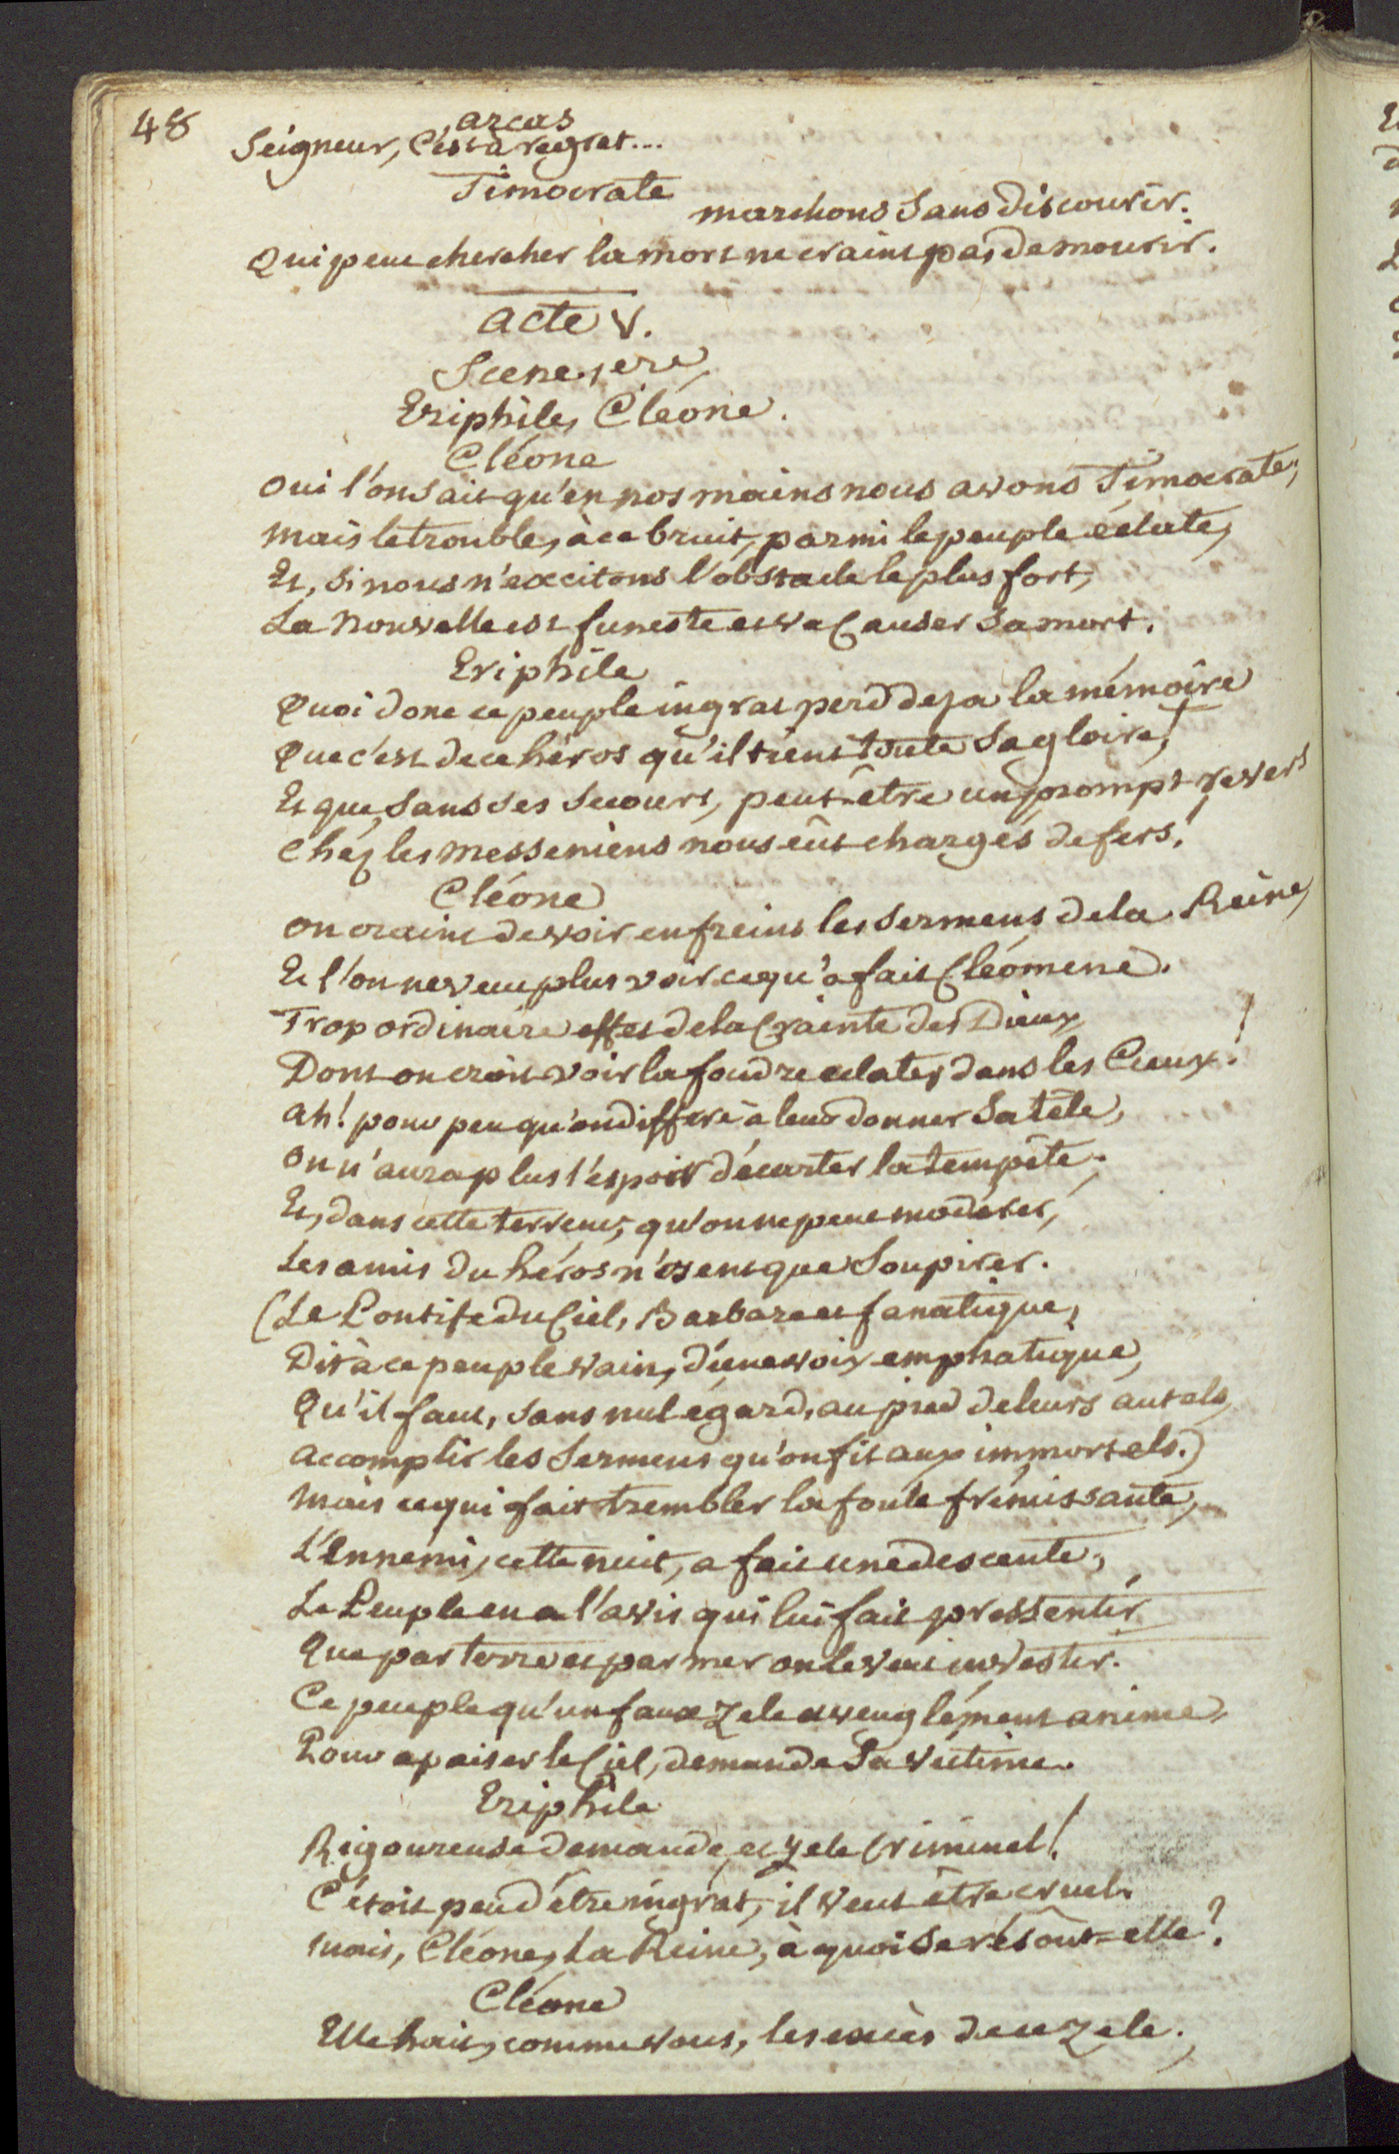 48
arcas
Seigneur, C'est à regret...
Timocrate
marchons sans discourir.
Qui peut chercher la mort ne craint pas de mourir.
acte V.
Scene 1ere
Eriphile, Cléone.
Cléone
Oui l'on sait qu'en nos mains nous avons Timocrate;
Mais le trouble, à ce bruit, parmi le peuple éclate,
Et, si nous n'excitons l'obstacle le plus fort,
La nouvelle est funeste et va Causer sa mort.
Eriphile
Quoi donc ce peuple ingrat perd deja la mémoire
Que c'est de ce héros qu'il tient toute sa gloire,!
Et que, sans ses secours, peut-être un prompt revers
Chez les messeniens nous eût chargés de fers!
Cléone
On craint de voir enfreins les sermens de la Reine,
Et l'on ne veut plus voir ce qu'a fait Cléomene.
Trop ordinaire effet de la Crainte des Dieux
Dont on croit voir la foudre eclater dans les Cieux!
ah! pour peu qu'on differe à leur donner sa tête,
On n'aura plus l'espoir d'écarter la tempête.
Et, dans cette terreur, qu'on ne peut modérer,
Les amis du héros n'osent que soupirer.
(Le Pontife du Ciel, Barbare et fanatique,
Dit à ce peuple vain, d'une voix emphatique,
Qu'il faut, sans nul égard, au pied de leurs autels,
accomplir les sermens qu'on fit aux immortels.)
Mais ce qui fait trembler la foule frémissante,
L'Ennemi, cette nuit, a fait une descente,
Le Peuple en a l'avis qui lui fait pressentir
Que par terre et par mer on le veut investir.
Ce peuple qu'un faux zele aveuglément anime,
Pour apaiser le Ciel, demande sa victime.
Eriphile
Rigoureuse demande, et zele Criminel!
C'étoit peu d'être ingrat, il veut être cruel.
Mais, Cléone, La Reine, à quoi se résout-elle?
Cléone
Elle hait, comme vous, les excès de ce zele.